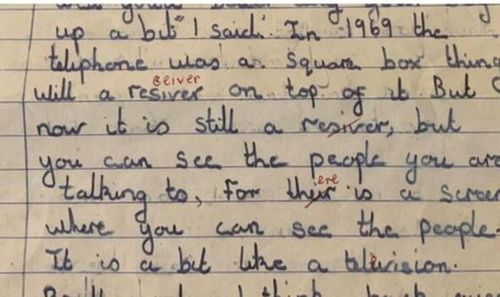 up a bit" I said. In 1969 the
teliphone was a square box thing
seiver
will a resiver on top of it But
now it is still a resiver, but
you can see the people you are
ere
talking to, for their is a scree
where you can see the people.
It is a bit like a telivision.